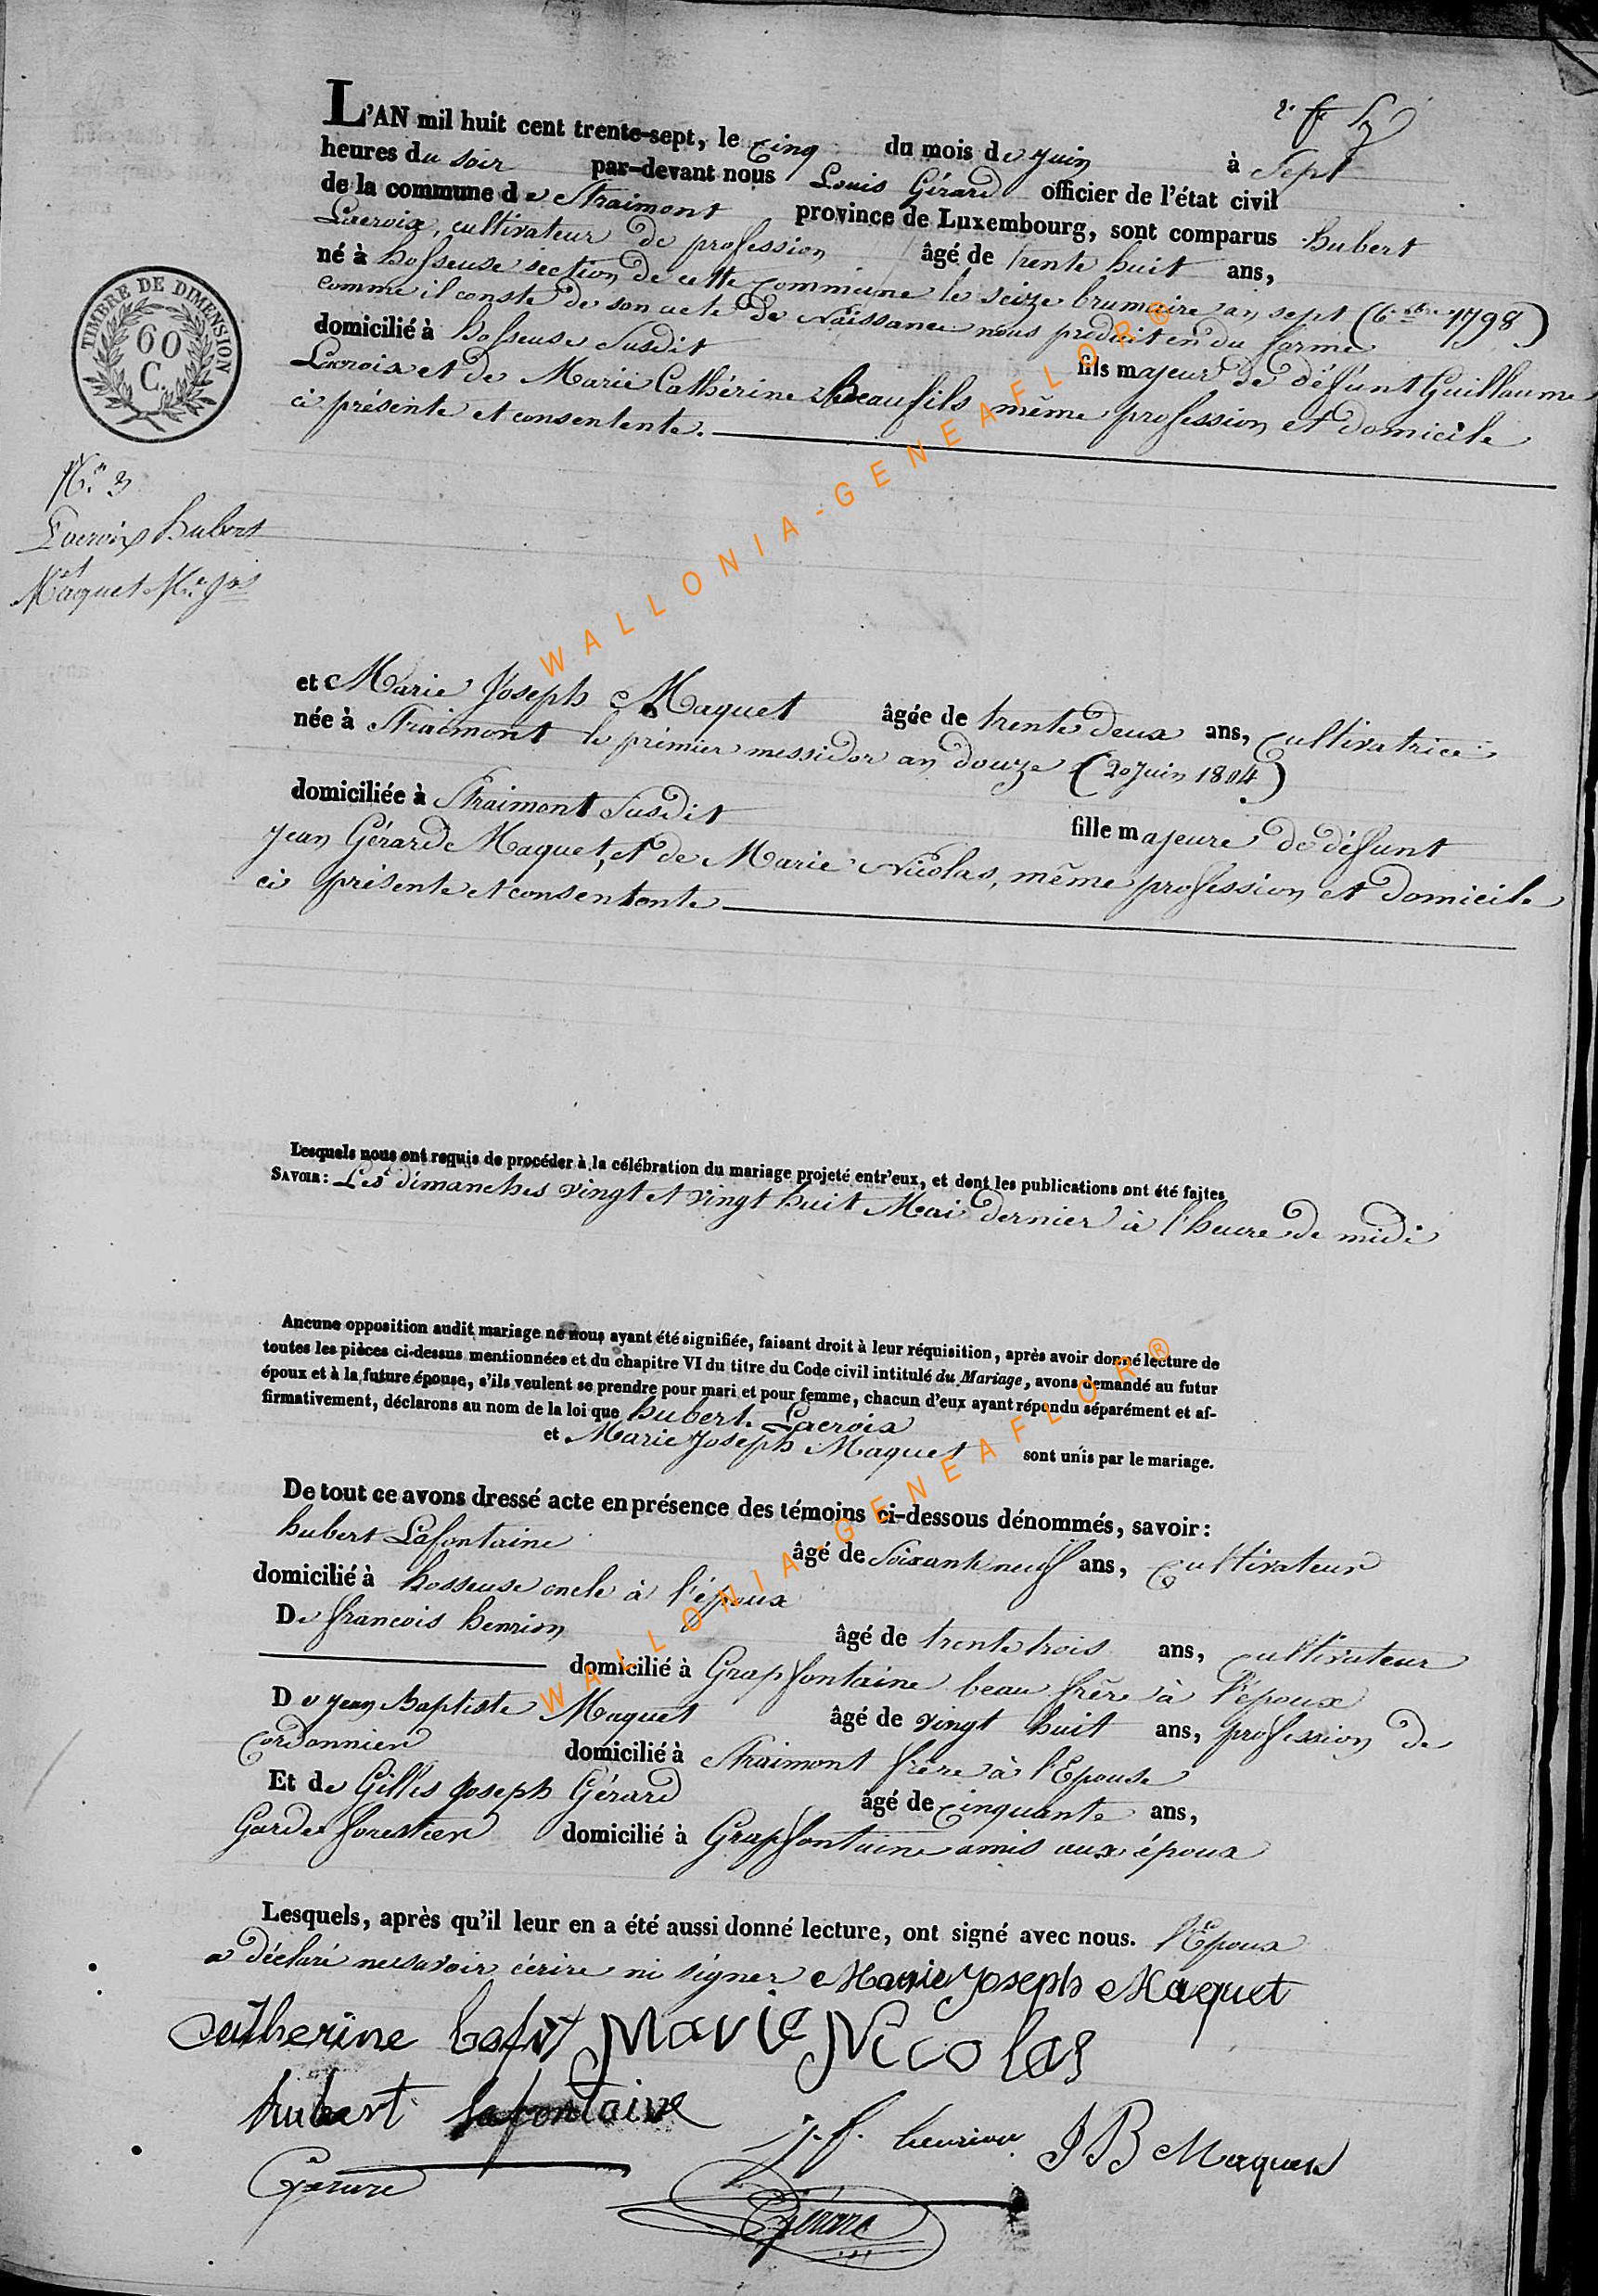 L'AN mil huit cent trente-sept, le cinq du mois de Juin à Sept
heures du soir par-devant nous Louis Gérard officier de l'état civil
de la commune de Straimont province de Luxembourg, sont comparus hubert
Lacroix, cultivateur de profession âgé de trente huit ans,
né à hosseuse section de cette commune le seize brumaire an sept (6 9bre 1798)
comme il conste de son acte de Naissance nous produit en du forme
domicilié à hosseuse Susdit fils majeur de défunt Guillaume
Lacroix et de Marie Cathérine Beaufils même profession et domicile
ci présente et consentente.
TIMBRE DE DIMENSION
60
C.
N° 3
Lacroix hubert
et
Maquet Mie Jos
et Marie Joseph Maquet âgée de trente deux ans, cultivatrice
née à Straimont le prémier messidor an douze (20 Juin 1804)
domiciliée à Straimont Susdit fille majeure de défunt
Jean Gérard Maquet, et de Marie Nicolas, même profession et domicile
ci présente et consentente
Lesquels nous ont requis de procéder à la célébration du mariage projeté entr'eux, et dont les publications ont été faites
SAVOIR: Les dimanches vingt et vingt huit Mai dernier à l'heure de midi
Aucune opposition audit mariage ne nous ayant été signifiée, faisant droit à leur réquisition, après avoir donné lecture de
toutes les pièces ci-dessus mentionnées et du chapitre VI du titre du Code civil intitulé du Mariage, avons demandé au futur
époux et à la future épouse, s'ils veulent se prendre pour mari et pour femme, chacun d'eux ayant répondu séparément et af-
firmativement, déclarons au nom de la loi que hubert Lacroix
et Marie Joseph Maquet sont unis par le mariage.
De tout ce avons dressé acte en présence des témoins ci-dessous dénommés, savoir:
hubert Lafontaine âgé de Soixante neuf ans, cultivateur
domicilié à hosseuse oncle à l'époux
De francois henrion âgé de trente trois ans, cultivateur
domicilié à Grapfontaine beau frère à l'époux
De Jean Baptiste Maquet âgé de vingt huit ans, profession de
Cordonnier domicilié à Straimont frère à l'Epouse
Et de Gilles Joseph Gérard âgé de cinquante ans,
Garde forestier domicilié à Grapfontaine amis aux époux
Lesquels, après qu'il leur en a été aussi donné lecture, ont signé avec nous. l'Epoux
a déclaré ne savoir écrire ni signer Marie Joseph Maquet
Catherine Marie Nicolas
hubert lafontaine
j. f. henrion J B Maquet
Gérard
Gérard
WALLONIA-GENEAFLOR®
WALLONIA-GENEAFLOR®